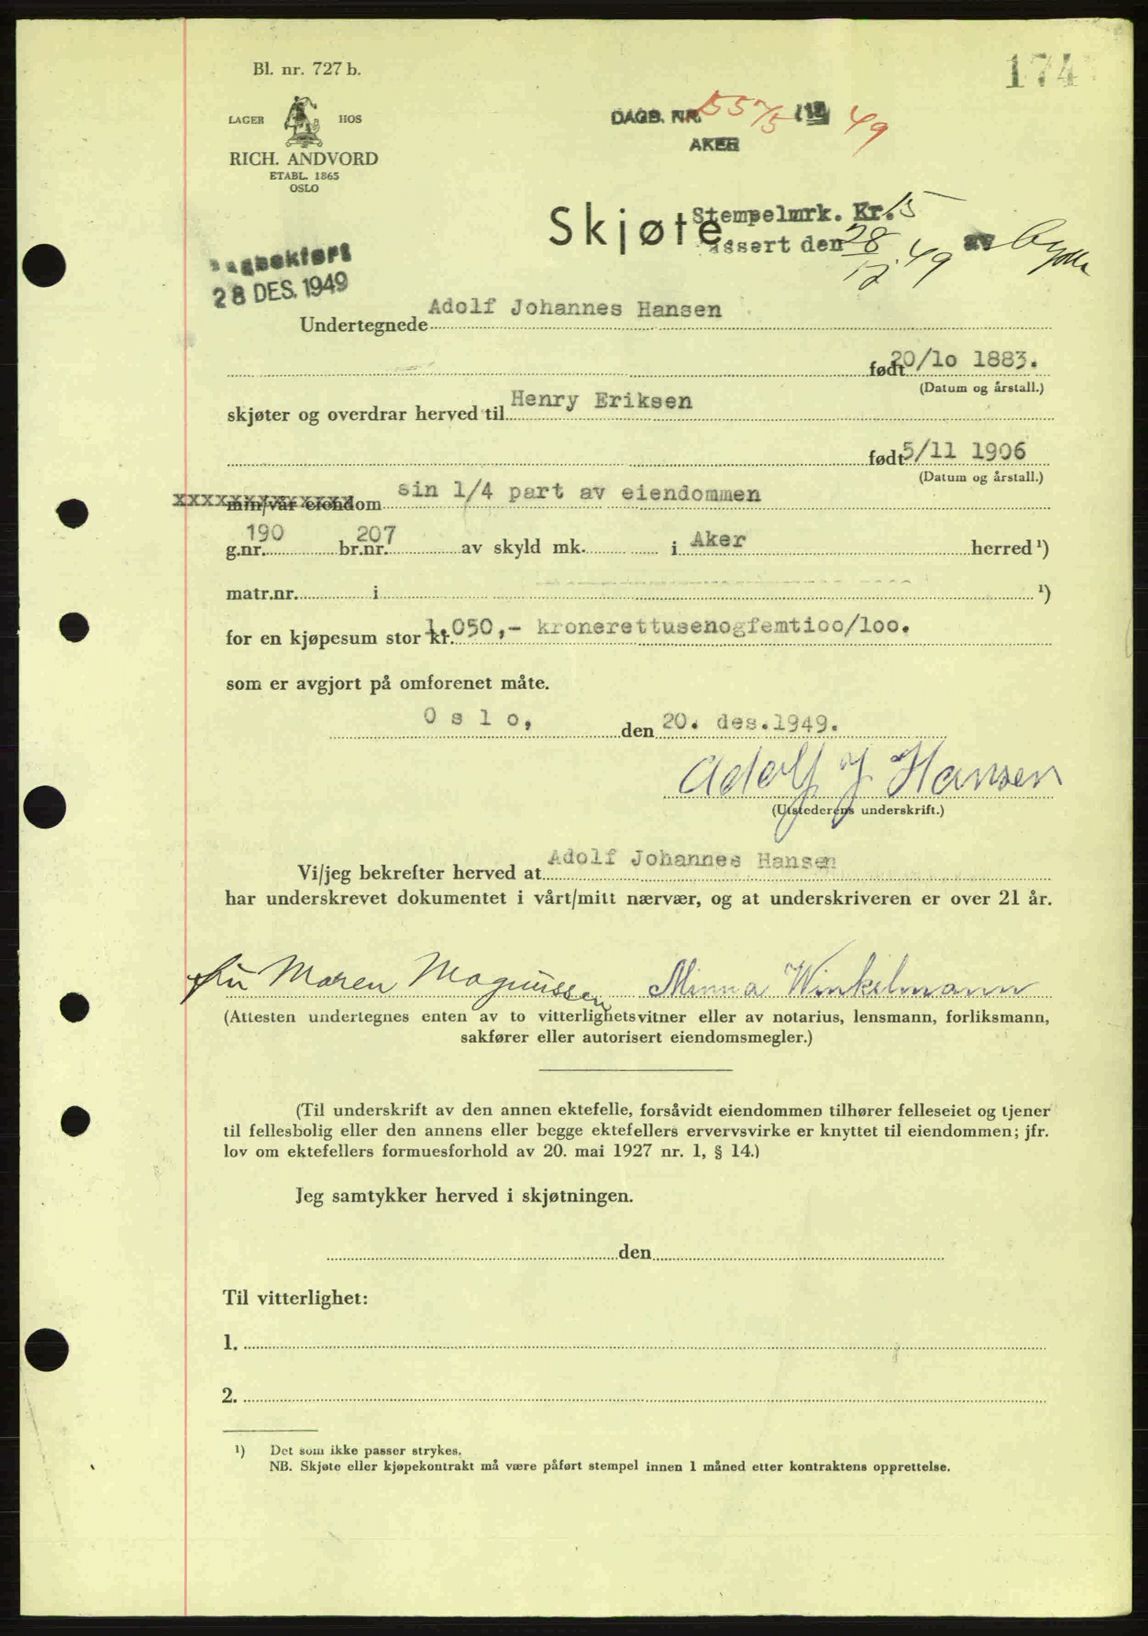 Bl. nr. 727 b.
1747
LAGER HOS
RICH. ANDVORD
ETABL. 1865
OSLO
DAGB. NR. 5575 19 49
AKER
Skjøte
Stempelmrk. Kr. 15
kassert den 28/12.49 av
Dagbokført
28 DES. 1949
Undertegnede Adolf Johannes Hansen
født 20/10 1883.
(Datum og årstall.)
skjøter og overdrar herved til Henry Eriksen
født 5/11 1906
(Datum og årstall.)
min/vår eiendom sin 1/4 part av eiendommen
g.nr. 190 br.nr. 207 av skyld mk. i Aker herred ¹)
matr.nr. i ¹)
for en kjøpesum stor kr. 1.050,- kronerettusenogfemtioo/loo.
som er avgjort på omforenet måte.
Oslo, den 20. des.1949.
Adolf J Hansen
(Utstederens underskrift.)
Vi/jeg bekrefter herved at Adolf Johannes Hansen
har underskrevet dokumentet i vårt/mitt nærvær, og at underskriveren er over 21 år.
Fru Maren Magnussen Minna Winkelmann
(Attesten undertegnes enten av to vitterlighetsvitner eller av notarius, lensmann, forliksmann,
sakfører eller autorisert eiendomsmegler.)
(Til underskrift av den annen ektefelle, forsåvidt eiendommen tilhører felleseiet og tjener
til fellesbolig eller den annens eller begge ektefellers ervervsvirke er knyttet til eiendommen; jfr.
lov om ektefellers formuesforhold av 20. mai 1927 nr. 1, § 14.)
Jeg samtykker herved i skjøtningen.
den
Til vitterlighet:
1.
2.
¹) Det som ikke passer strykes.
NB. Skjøte eller kjøpekontrakt må være påført stempel innen 1 måned etter kontraktens opprettelse.